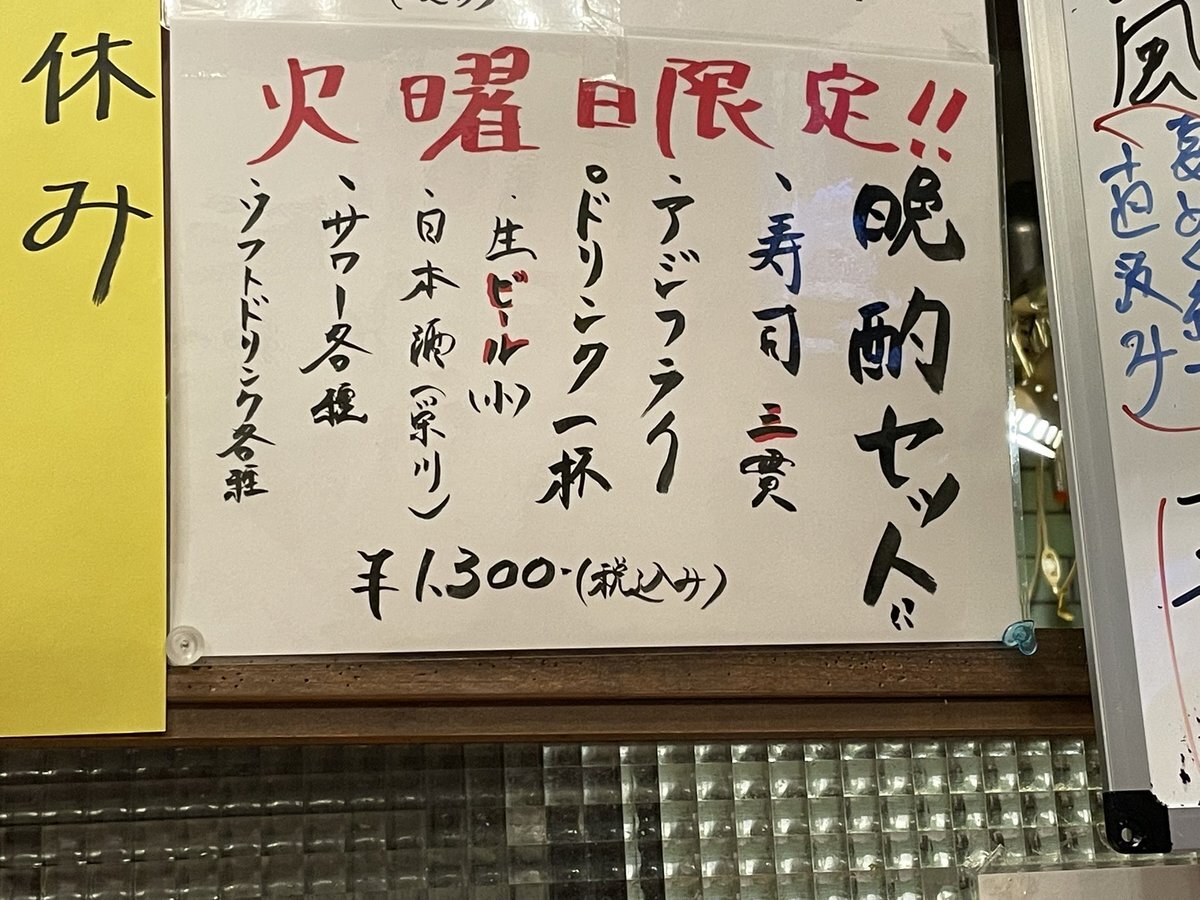 火曜日限定!!
晩酌セット
、寿司 三貫
・アジフライ
°ドリンク一杯
・生ビール(小)
・日本酒(栄川)
、サワー各種
・ソフトドリンク各種
¥1,300-(税込み)
休み
風